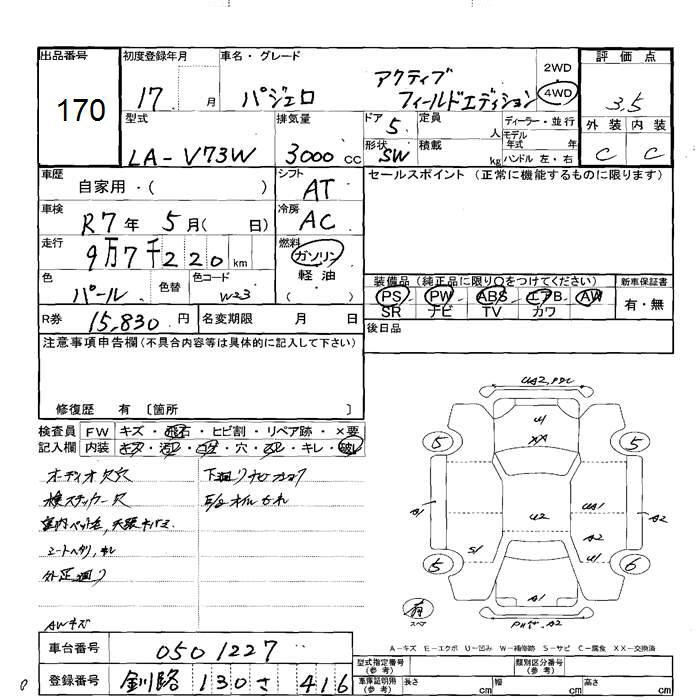 出品番号 初度登録年月 車名・グレード 2WD 評価点
170 17 月 パジェロ アクティブ フィールドエディション 4WD 3.5
型式 排気量 ドア 5 定員 人 ディーラー・並行 外装 内装
LA-V73W 3000 CC 形状 SW 積載 kg モデル年式 年 ハンドル 左・右 C C
車歴 自家用・( ) シフト AT セールスポイント (正常に機能するものに限ります)
車検 R7年 5月( 日) 冷房 AC
走行 9万7千220 km 燃料 ガソリン
色 パール 色替 色コード W23 軽油 ( )
装備品(純正品に限り○をつけてください) 新車保証書
PS PW ABS エアB AW 有・無
SR ナビ TV カワ
R券 15,830 円 名変期限 月 日 後日品
注意事項申告欄(不具合内容等は具体的に記入して下さい)
修復歴 有 〔箇所 〕
検査員 FW キズ・飛石・ヒビ割・リペア跡・×要
記入欄 内装 キズ・汚レ・コゲ・穴・スレ・キレ・破レ
オーディオ欠穴
検ステッカー穴
シートヘタリ,キレ
AWキズ
UA2,PDL
U1
XX
5 5
B1 U2 UA1 A2
S1 A2
U1
5 6
A1
有
スペア
A-キズ E-エクボ U-凹み W-補修跡 S-サビ C-腐食 XX-交換済
車台番号 0501227
登録番号 釧路 130 さ 416
型式指定番号(参考) 類別区分番号(参考)
車庫証明用(参考) 長さ cm 幅 cm 高さ cm